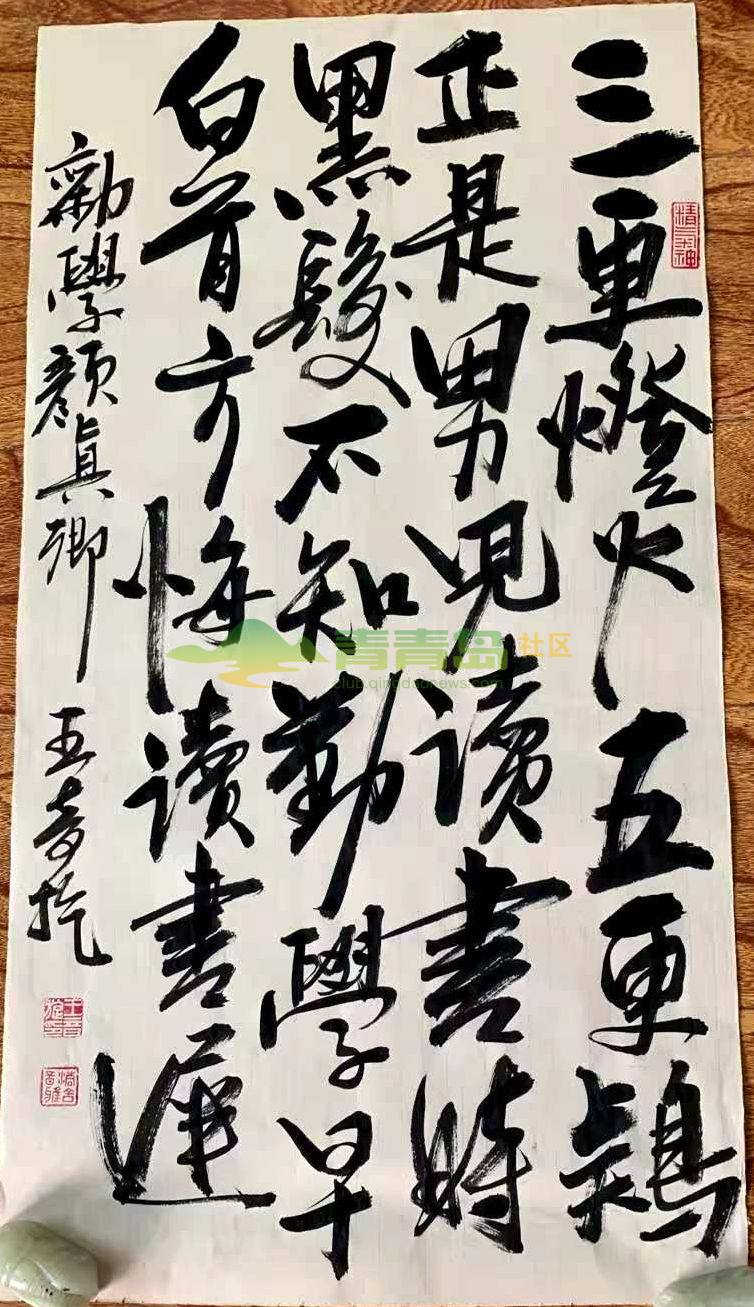 三更燈火五更鷄
正是男兒讀書時
黑髮不知勤學早
白首方悔讀書遲
勸學顏真卿 王
青青岛社区
club.qingdaonews.com